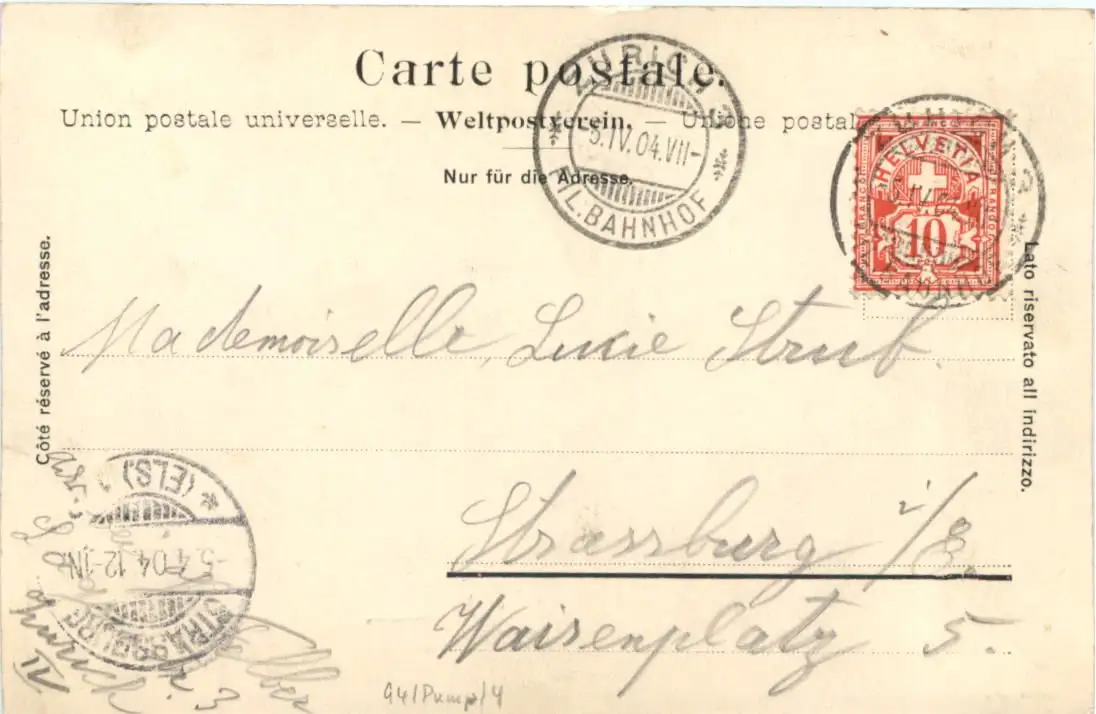 Carte postale.
Union postale universelle. — Weltpostverein. — Unione postal
Nur für die Adresse.
ZÜRICH 3
5.IV.04.VII-
FIL. BAHNHOF
HELVETIA
FRANCO
FRANCO
10
Côté réservé à l'adresse.
Lato riservato all indirizzo.
Mademoiselle Lucie Strub.
Strassburg i/E.
Waisenplatz 5.
STRASSBURG
(ELS.) *
-5.4.04.12-1N.
Zürich
IV
3